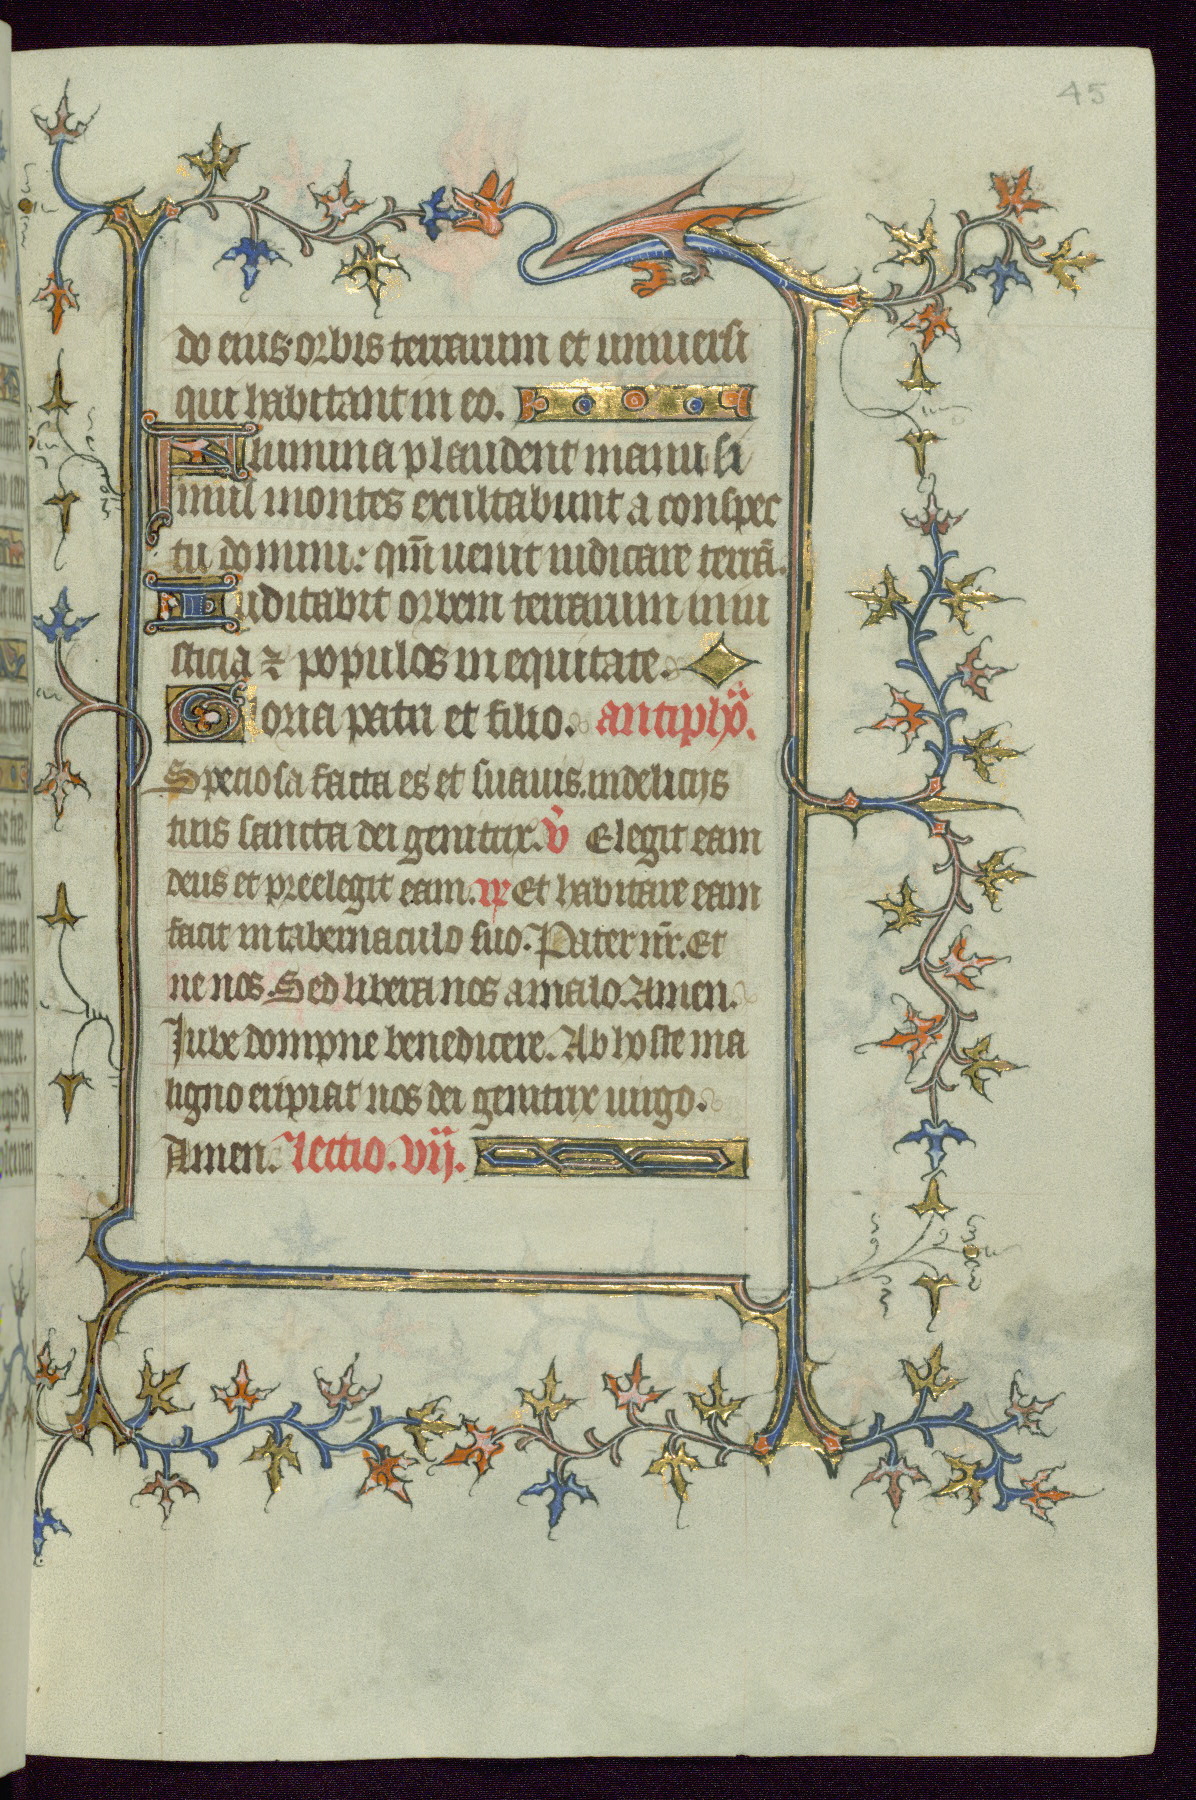 45
do eius orbis terrarum et uniuersi
qui habitant in eo.
Flumina plaudent manu si
mul montes exultabunt a conspec
tu domini: qm̄ uenit iudicare terrā.
Iudicabit orbem terrarum in iu
sticia ⁊ populos in equitate.
Gloria patri et filio. antipho.
Speciosa facta es et suauis. in delicijs
tuis sancta dei genitrix. V̄ Elegit eam
deus et preelegit eam. ℟ Et habitare eam
facit in tabernaculo suo. Pater nr̄. Et
ne nos. Sed libera nos a malo. Amen.
Iube dompne benedicere. Ab hoste ma
ligno eripiat nos dei genitrix uirgo.
Amen. lectio. vij.